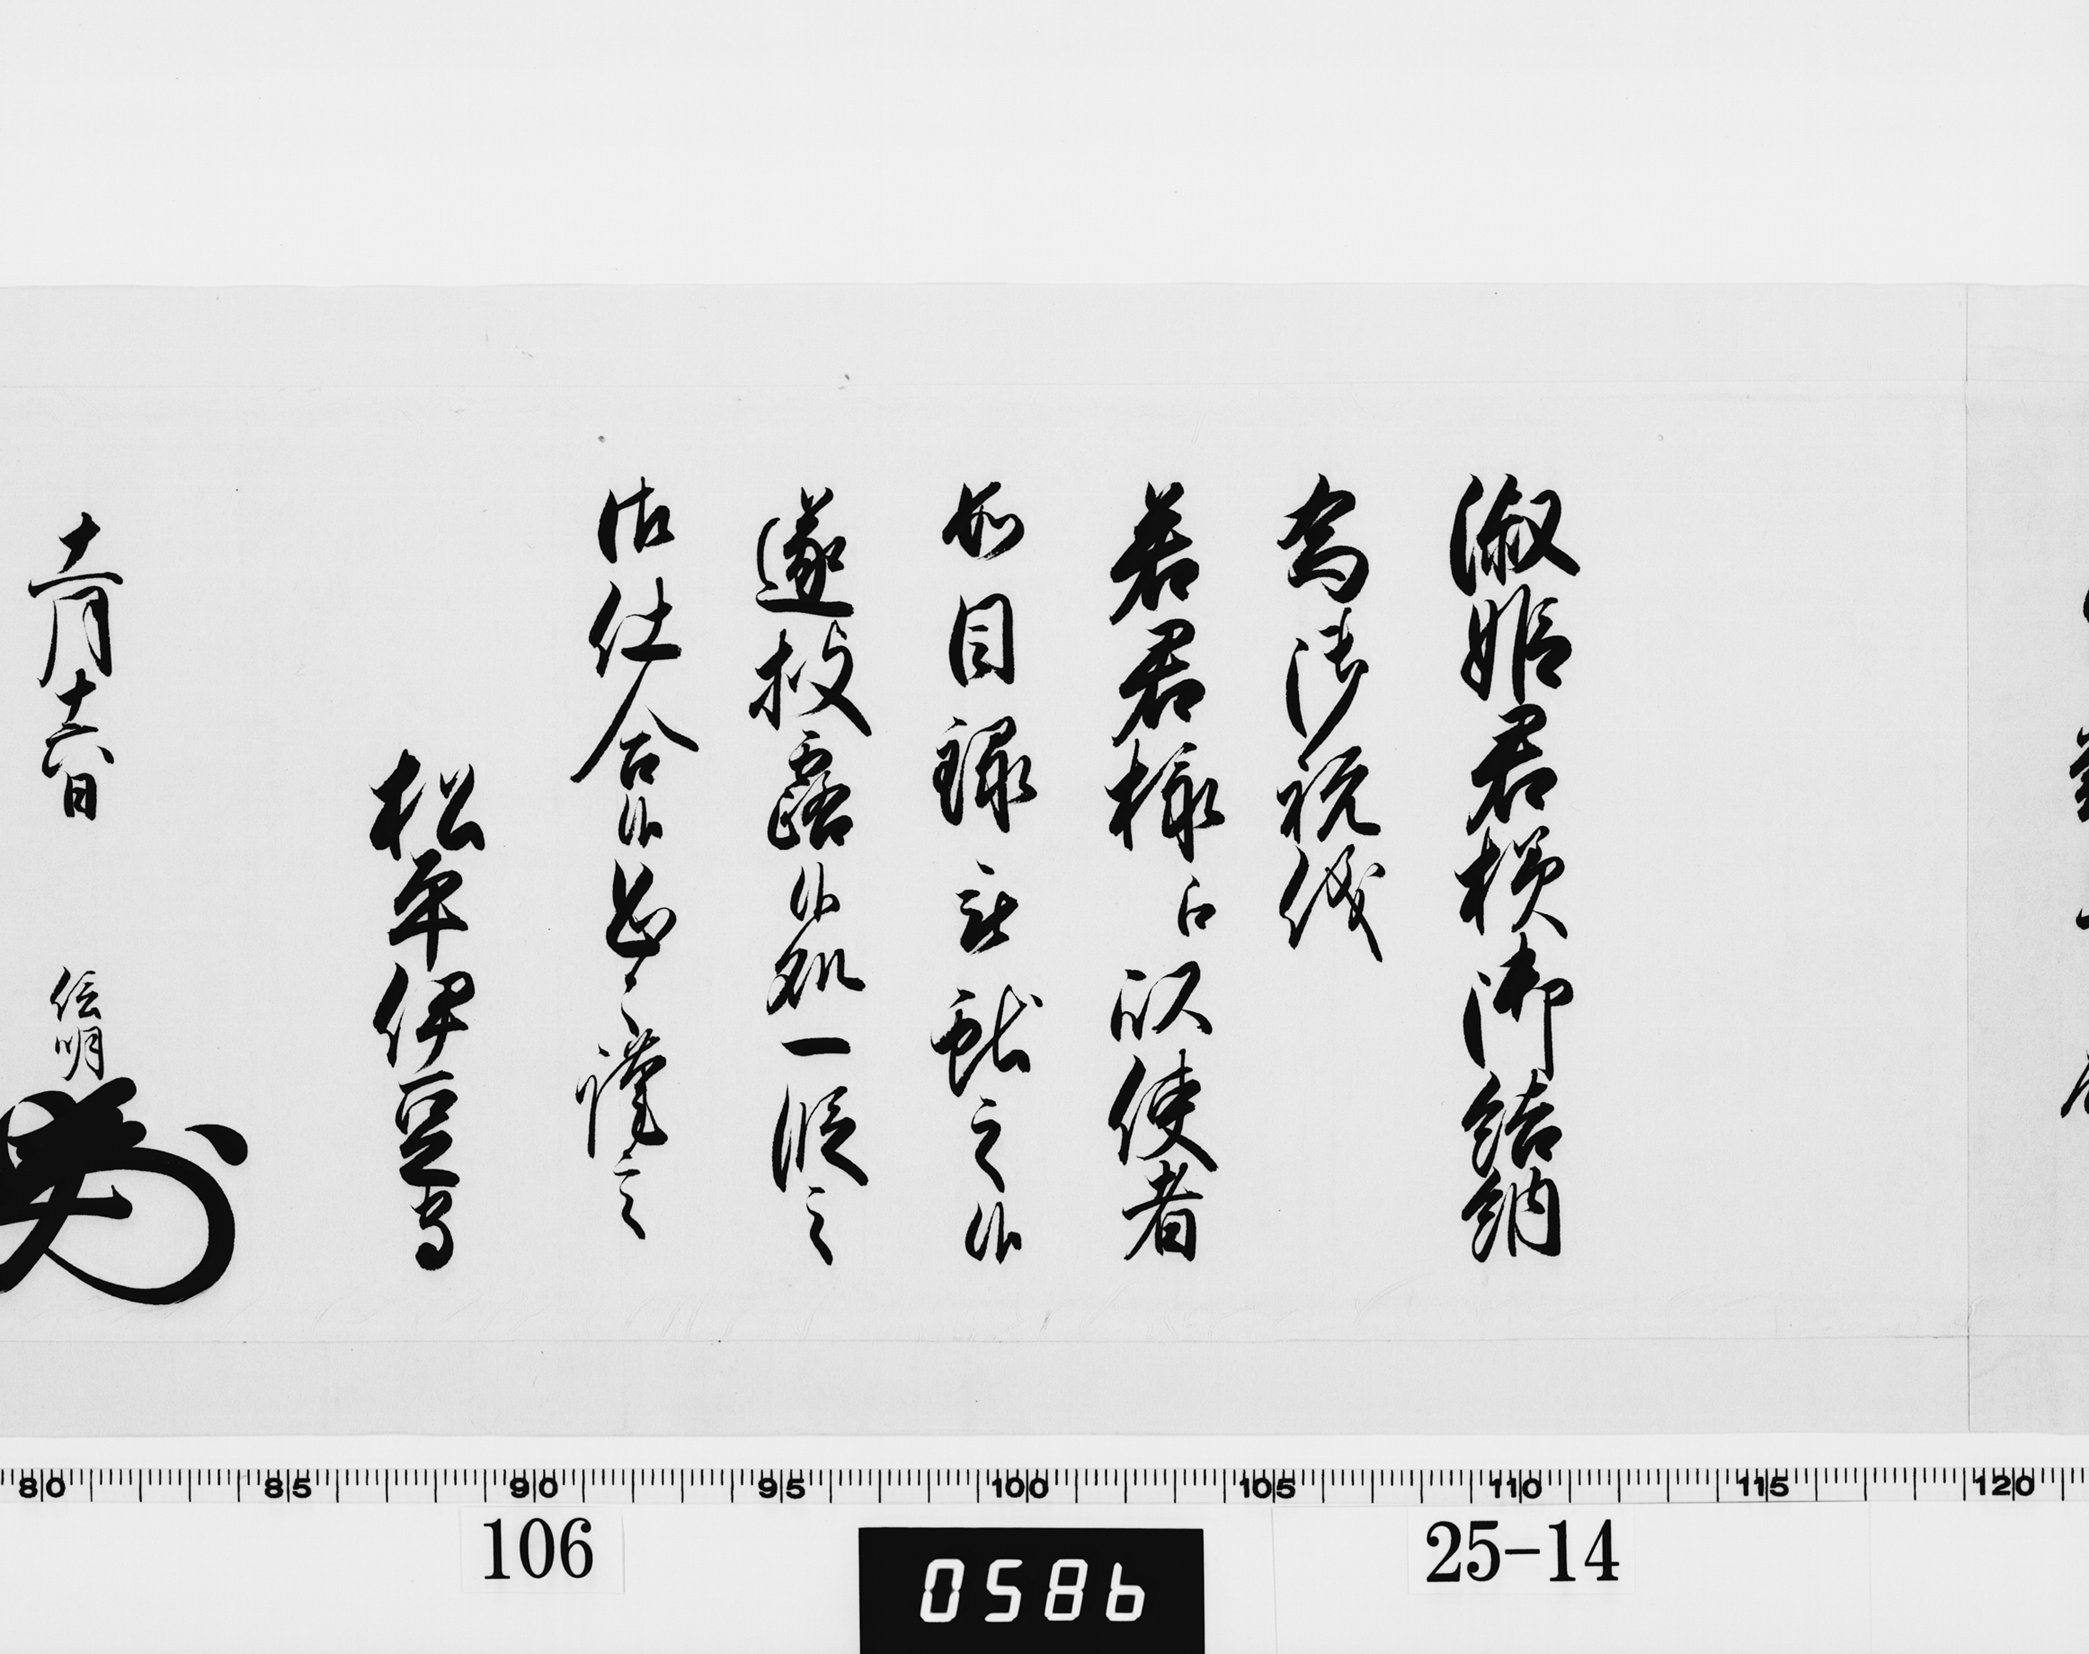 淑姫君様御結納
為御祝儀
若君様江以使者
如目録被献之候
遂披露候処一段之
御仕合候恐々謹言
松平伊豆守
十一月十六日 信明
80 85 90 95 100 105 110 115 120
106 0586 25-14